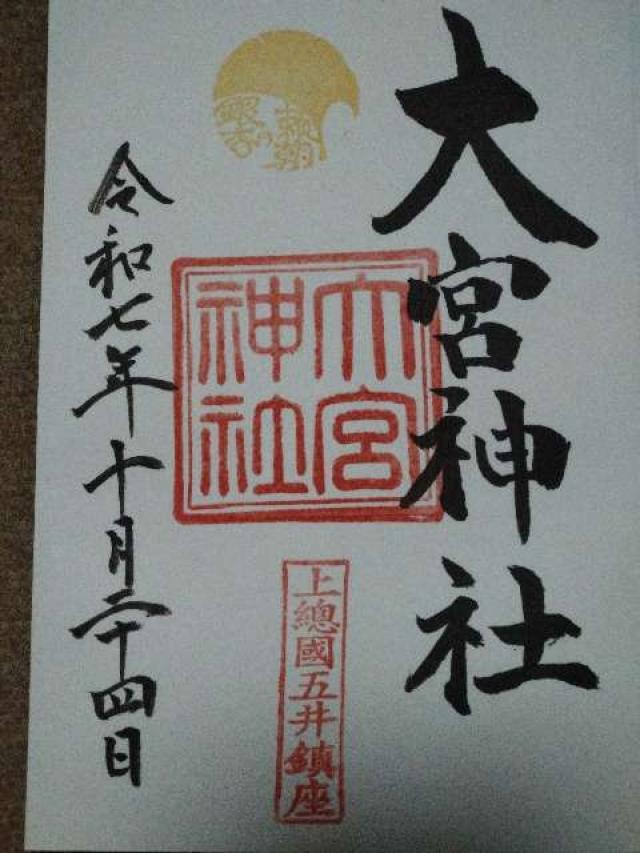 大宮神社
大宮
神社
上總國五井鎮座
令和七年十月二十四日